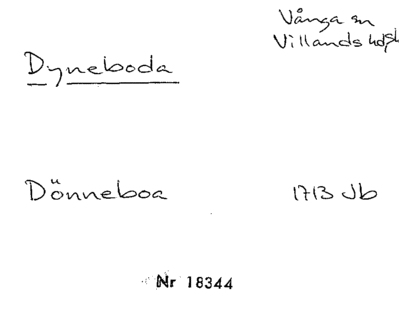 Vånga sn
Villands hdsk
Dyneboda
Dönneboa 1713 Jb
Nr 18344